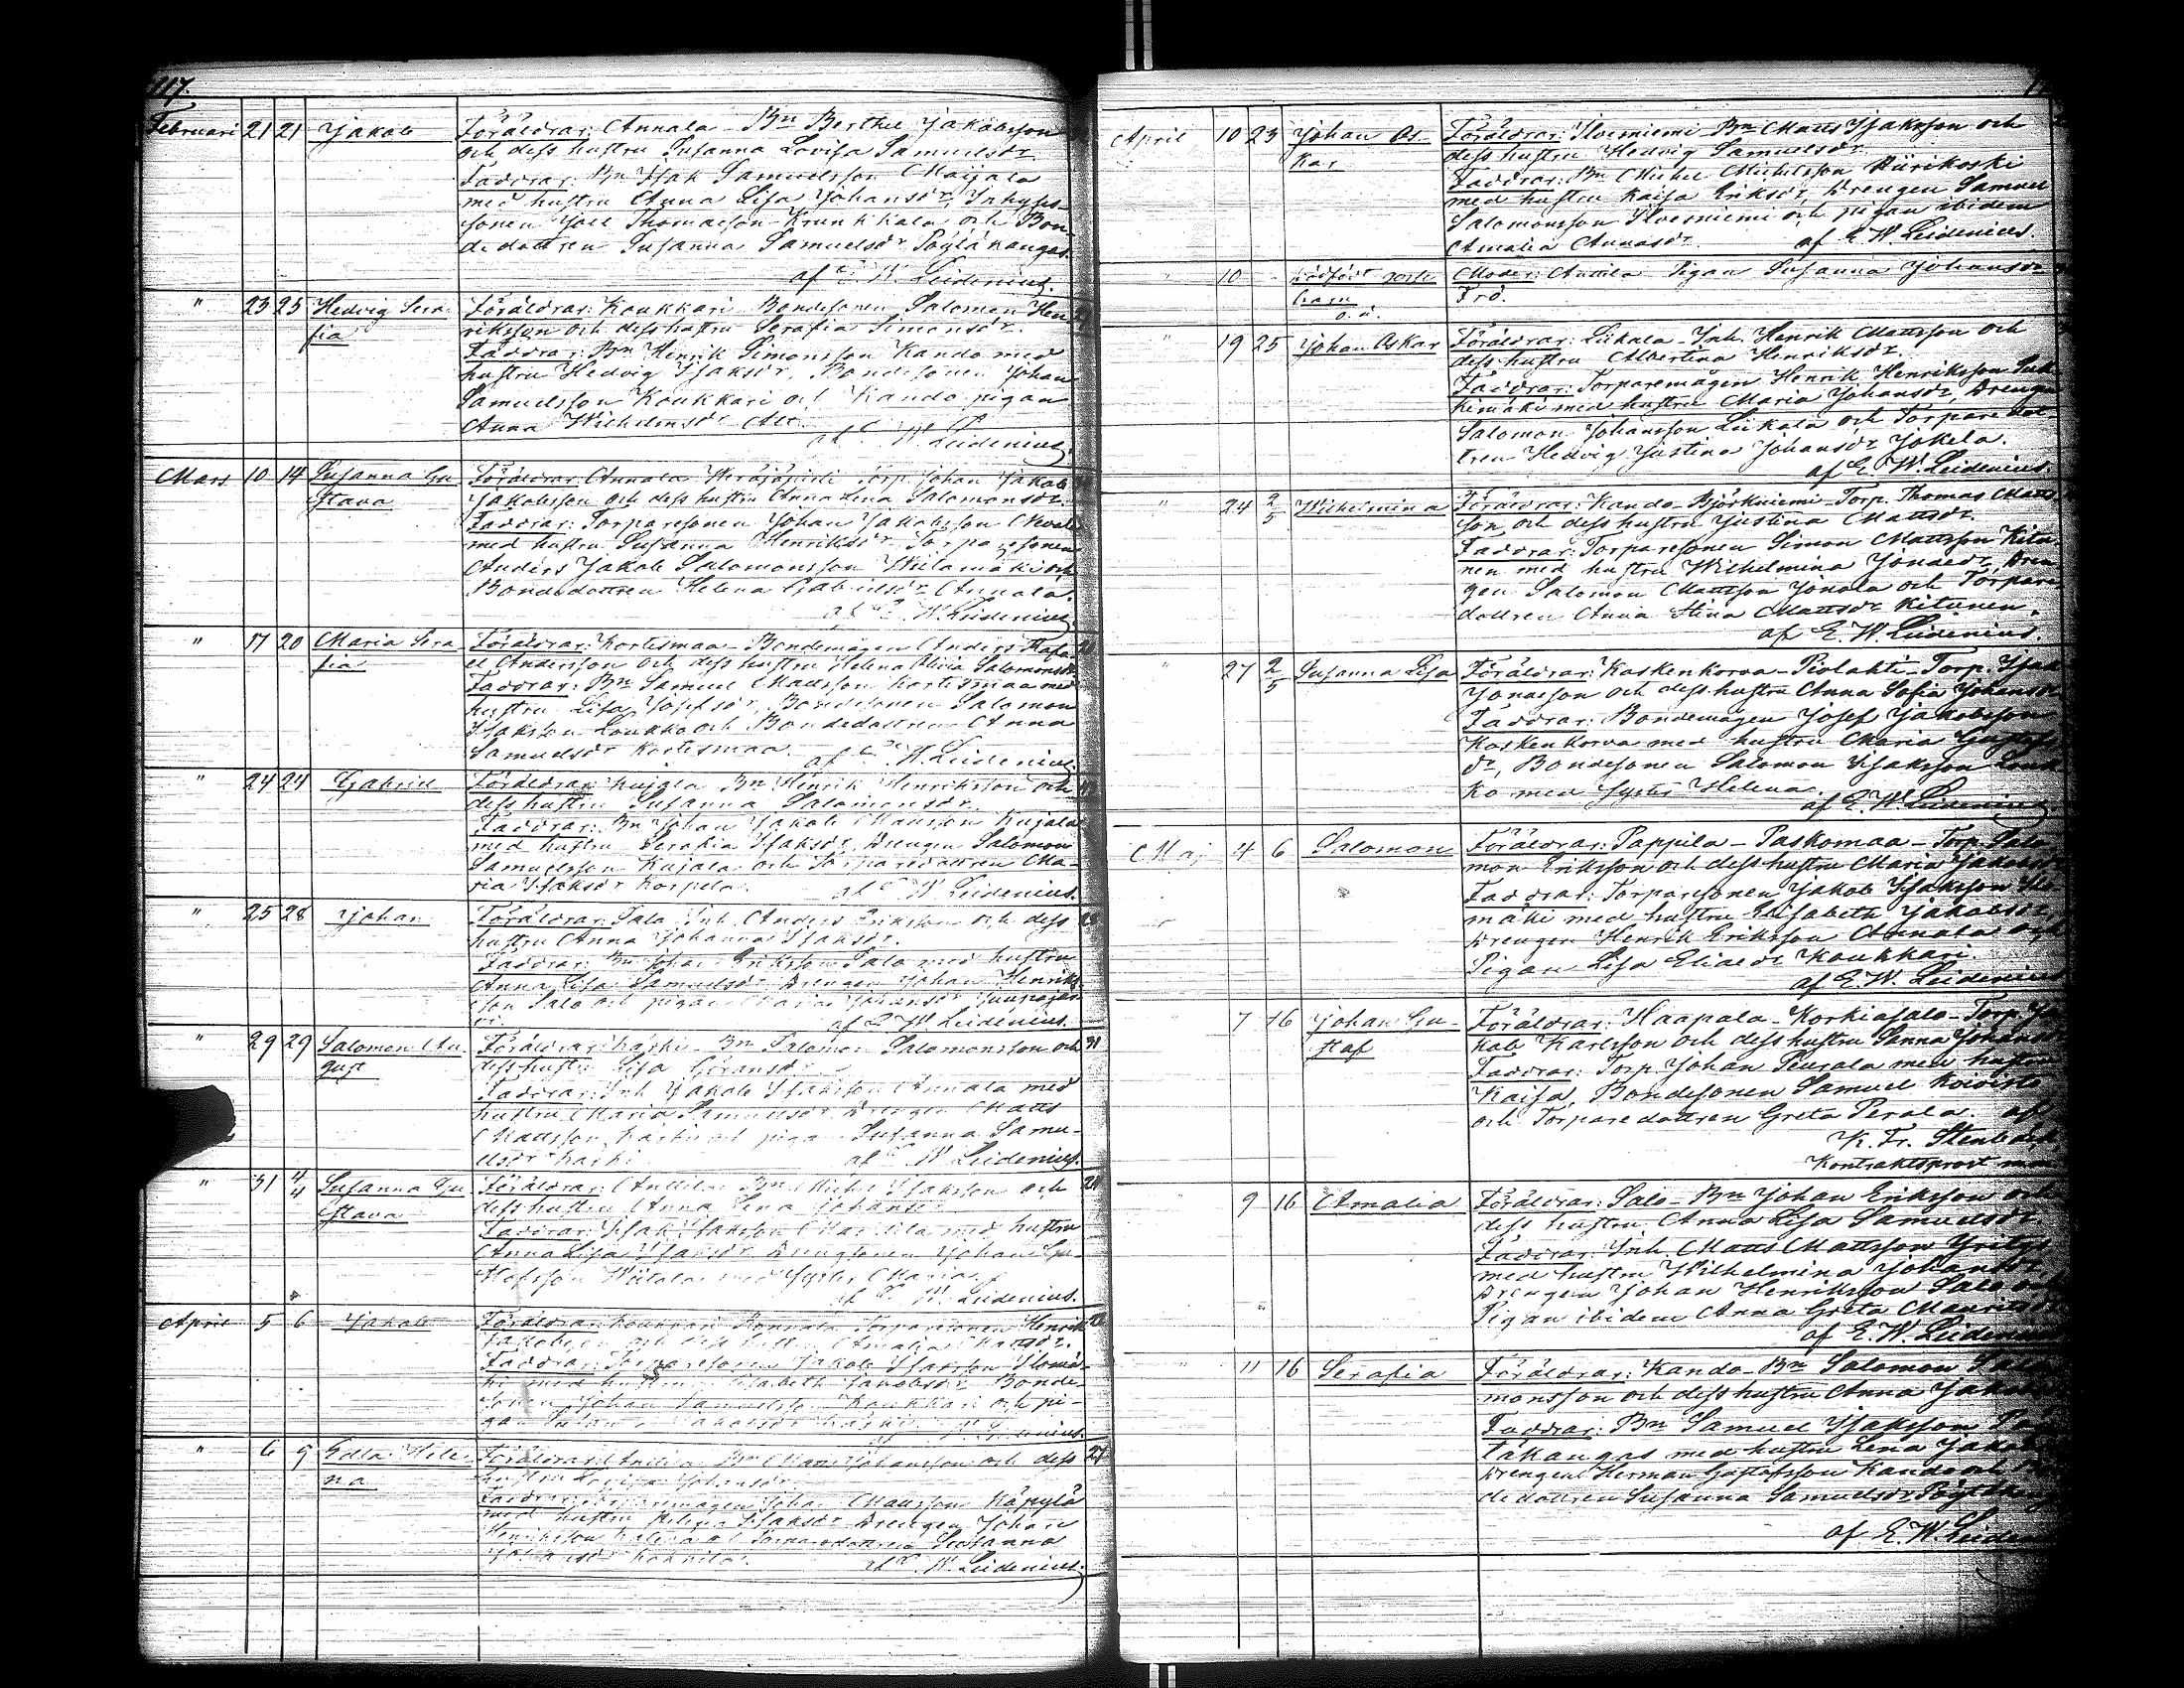 117.
Februari 21 21 Jakob Föräldrar: Annala Bn Berthel Jakobsson
och dess hustru Susanna Lovisa Samuelsdr
Faddrar: Bn Isak Samuelsson Maijala
med hustru Anna Lisa Johansdr, Inhyses
sonen Joel Thomasson Krunkkala och Bon-
dedottren Susanna Samuelsdr Pöytäkangas.
af E. W. Leidenius.
" 23 25 Hedvig Sera- Föräldrar: Koukkari Bondesonen Salomon Hen-
fia riksson och dess hustru Serafia Simonsdr.
Faddrar: Bn Henrik Simonsson Kando med
hustru Hedvig Isaksdr, Bondesonen Johan
Samuelsson Koukkari och Kando pigan
Anna Wilhelmsdr
af E. W. Leidenius.
Mars 10 14 Susanna Gu- Föräldrar: Annala Torp. Johan Jakob
stava Jakobsson och dess hustru Anna Lena Salomonsdr.
Faddrar: Torparesonen Johan Jakobsson
med hustru Susanna Henriksdr, Torparesonen
Anders Jakob Salomonsson och
Bondedottren Helena Gabrielsdr Annala.
af E. W. Leidenius.
" 17 20 Maria Sera- Föräldrar: Kortesmaa Bondemågen Anders
fia Andersson och dess hustru Helena Salomonsdr
Faddrar: Bn Samuel Mattsson Kortesmaa med
hustru Lisa Josefsdr, Bondesonen Salomon
Isaksson Loukko och Bondedottren Anna
Samuelsdr Kortesmaa. af E. W. Leidenius.
" 24 24 Gabriel Föräldrar: Kujala Bn Henrik Henriksson och
dess hustru Susanna Salomonsdr.
Faddrar: Bn Johan Jakob Mattsson Kujala
med hustru Serafia Isaksdr, Drengen Salomon
Samuelsson Kujala och Torparedottren Ma-
ria Isaksdr Korpela. af E. W. Leidenius.
" 25 28 Johan Föräldrar: Sala Inh. Anders Eriksson och dess
hustru Anna Johanna Isaksdr.
Faddrar: Bn Johan Eriksson Salo med hustru
Anna Lisa Samuelsdr, Drengen Johan Henriks-
son Salo och pigan Maria Johansdr
af E. W. Leidenius.
" 29 29 Salomon Au- Föräldrar: Bn Salomon Salomonsson och 31
gust dess hustru Lisa Göransdr
Faddrar: Inh. Jakob Isaksson Annala med
hustru Maria Samuelsdr, Drengen Matts
Mattsson och pigan Susanna Samu-
elsdr af E. W. Leidenius.
" 31 4/4 Susanna Gu- Föräldrar: Anttila Bn Michel Isaksson och
stava dess hustru Anna Lena Johansdr
Faddrar: Isak Isaksson med hustru
Anna Lisa Isaksdr, Drengsonen Johan Gu-
stafsson med syster Maria.
af E. W. Leidenius.
April 5 6 Jakob Föräldrar: Koukkari Torparesonen Henrik
Jakobsson och dess hustru Amalia Mattsdr.
Faddrar: Torparesonen Jakob Isaksson Ilomä-
ki med hustru Elisabeth Jakobsdr, Bonde-
sonen Johan Samuelsson Koukkari och pi-
gan
" 6 9 Edla Hele- Föräldrar: Anttila Bn Matts Johansson och dess 27
na hustru Johansdr
Faddrar: Torparemågen Johan Mattsson Käpylä
med hustru Isaksdr, Drengen Johan
Henriksson och Susanna
af E. W. Leidenius.
April 10 23 Johan Os- Föräldrar: Ilvesniemi Bn Matts Isaksson och
kar dess hustru Hedvig Samuelsdr
Faddrar: Bn Michel Michelsson Hiirikoski
med hustru Kaisa Eriksdr, Drengen Samuel
Salomonsson Ilvesniemi och pigan ibidem
Amalia Annasdr. af E. W. Leidenius.
" 10 Dödfödt gosse- Moder: Anttila Pigan Susanna Johansdr
barn o.ä.
" 19 25 Johan Oskar Föräldrar: Liikala Inh. Henrik Mattsson och
dess hustru Albertina Henriksdr.
Faddrar: Torparemågen Henrik Henriksson
med hustru Maria Johansdr, Drengen
Salomon Johansson Liikala och Torparedot-
tren Hedvig Justina Johansdr Jokela.
af E. W. Leidenius.
" 24 2/5 Wilhelmina Föräldrar: Kando Björkniemi Torp. Thomas Matts-
son och dess hustru Justina Mattsdr.
Faddrar: Torparesonen Simon Mattsson Kitu-
nen med hustru Wilhelmina Jonaedr, Dren-
gen Salomon Mattsson Jonala och Torpare-
dottren Anna Stina Mattsdr Kitunen.
af E. W. Leidenius.
" 27 2/5 Susanna Lisa Föräldrar: Kaskenkorva Torp. Isak
Jonasson och dess hustru Anna Sofia Johansdr
Faddrar: Bondemågen Josef Jakobsson
Kaskenkorva med hustru Maria Gustafs-
dr, Bondesonen Salomon Isaksson Louk-
ko med syster Helena.
af E. W. Leidenius.
Maj 4 6 Salomon Föräldrar: Pappila Paskomaa Torp. Salo-
mon Eriksson och dess hustru Maria Jakobsdr
Faddrar: Torparesonen Jakob Isaksson Ilo-
mäki med hustru Elisabeth Jakobsdr,
Drengen Henrik Eriksson Annala och
Pigan Lisa Eliaedr Koukkari.
af E. W. Leidenius.
" 7 16 Johan Gu- Föräldrar: Haapala Korkiasalo Torp. Ja-
staf kob Karlsson och dess hustru Sanna Johansdr
Faddrar: Torp. Johan Peurala med hustru
Kaisa, Bondesonen Samuel Koivisto
och Torparedottren Greta Perala. af
K. Fr. Stenbäck
Kontraktsprost
" 9 16 Amalia Föräldrar: Salo Bn Johan Eriksson och
dess hustru Anna Lisa Samuelsdr
Faddrar: Inh. Matts Mattsson
med hustru Wilhelmina Johansdr,
Drengen Johan Henriksson Salo och
Pigan ibidem Anna Greta Mauritsdr
af E. W. Leidenius
" 11 16 Serafia Föräldrar: Kando Bn Salomon Salo-
monsson och dess hustru Anna Jakobsdr
Faddrar: Bn Samuel Isaksson Pöy-
täkangas med hustru Lena
Drengen Herman Gustafsson Kando och
dedottren Susanna Samuelsdr
af E. W. Leidenius